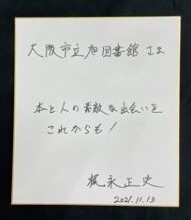 大阪市立旭図書館 さま
本と人の素敵な出会いを
これからも!
梶永正史
2021.11.13